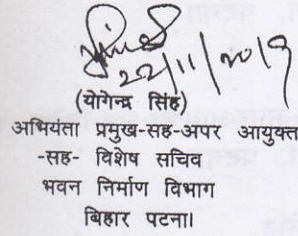 22/11/2019
(योगेन्द्र सिंह)
अभियंता प्रमुख-सह-अपर आयुक्त
-सह- विशेष सचिव
भवन निर्माण विभाग
बिहार पटना।